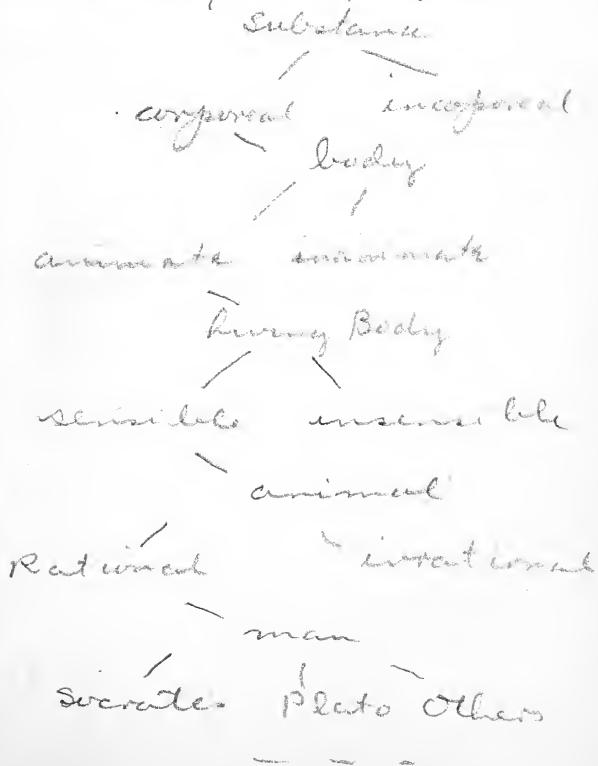 Substance
corporeal incorporeal
body
animate inanimate
Living Body
sensible insensible
animal
Rational irrational
man
Socrates Plato Others